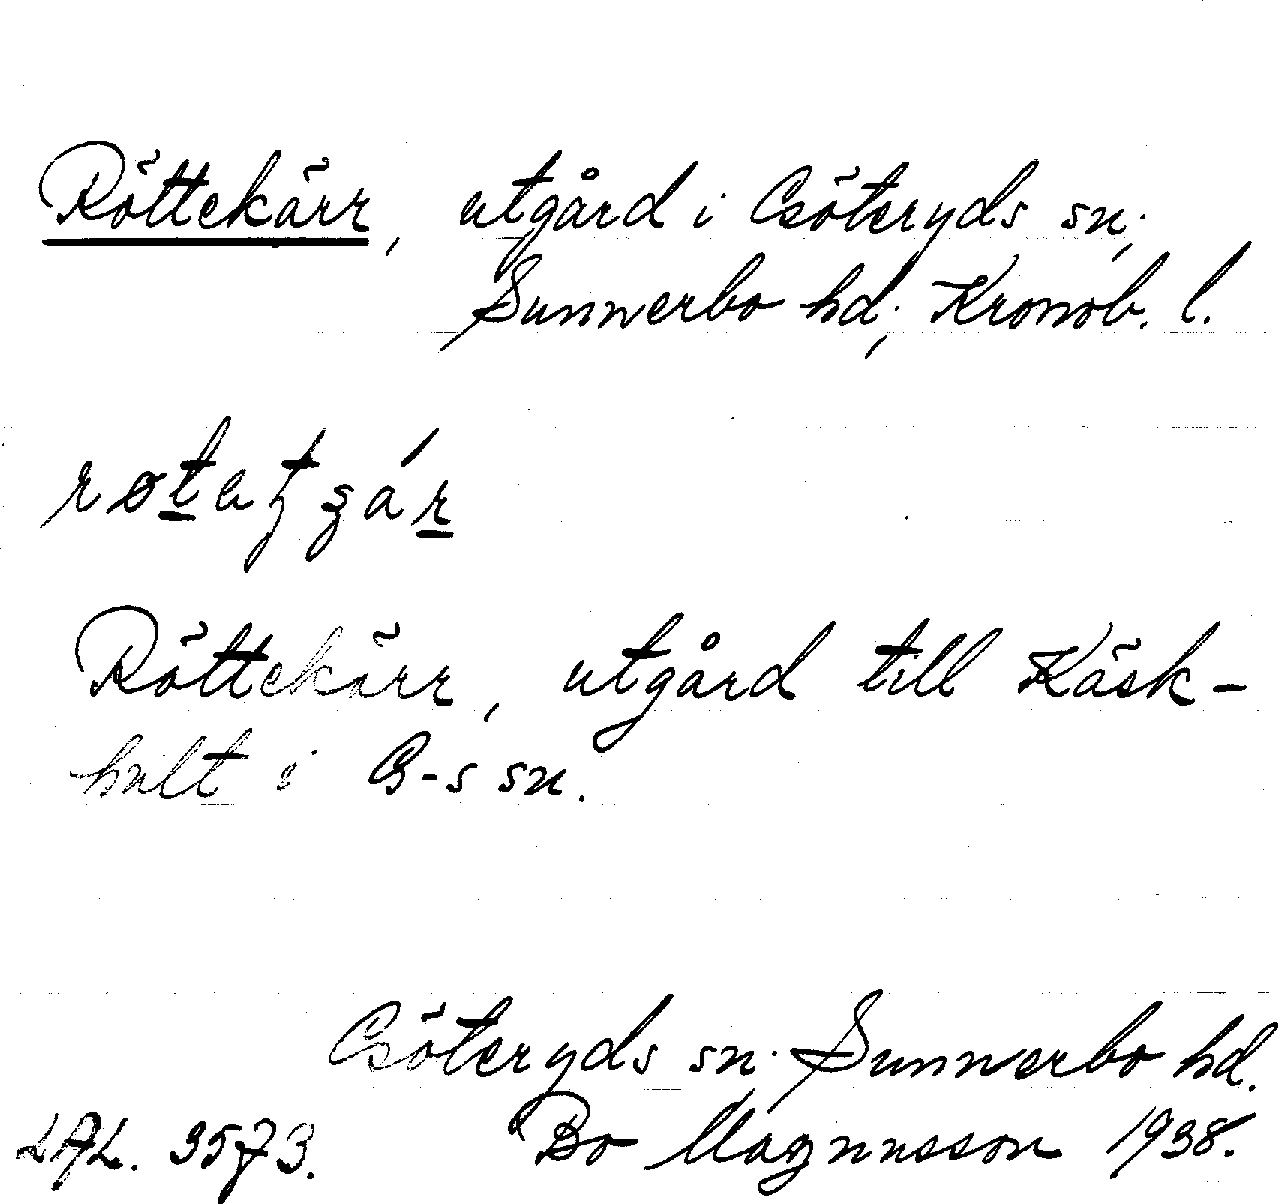 Röttekärr, utgård i Göteryds sn;
Sunnerbo hd; Kronob. l.
Röttekärr, utgård till Käsk-
hult i G-s sn.
Göteryds sn; Sunnerbo hd.
LAL. 3573. Bo Magnusson 1938.